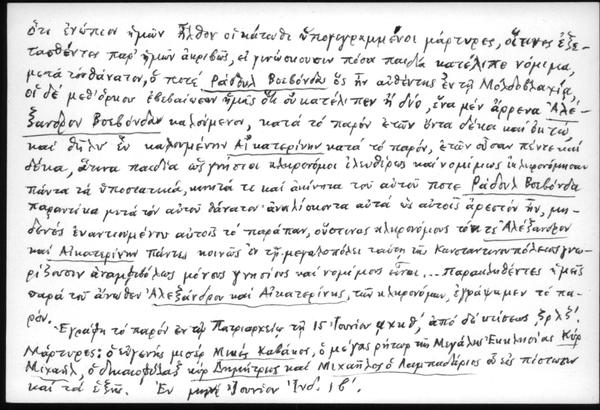 ὅτι ἐνώπιον ἡμῶν ἦλθον οἱ κάτωθι ὑπογεγραμμένοι μάρτυρες, οἵτινες ἐξε-
τασθέντες παρ' ἡμῶν ἀκριβῶς, εἰ γινώσκουσιν πόσα παιδία κατέλιπε νόμιμα
μετὰ τὸν θάνατον, ὁ ποτὲ Ράδουλ Βοεβόνδας ὃς ἦν αὐθέντης ἐν τῇ Μολδοβλαχίᾳ,
οἱ δὲ μεθ' ὅρκου ἐβεβαίωσαν ἡμᾶς ὅτι οὐ κατέλιπεν ἢ δύο, ἕνα μὲν ἄρρενα Ἀλέ-
ξανδρον Βοεβόνδαν καλούμενον, κατὰ τὸ παρὸν ἐτῶν ὄντα δέκα καὶ ὀκτώ,
καὶ θῆλυ ἓν καλουμένην Αἰκατερίνην κατὰ τὸ παρόν, ἐτῶν οὖσαν πέντε καὶ
δέκα, ἅτινα παιδία ὡς γνήσιοι κληρονόμοι ἐλευθέρως καὶ νομίμως ἐκληρονόμησαν
πάντα τὰ ὑποστατικά, κινητά τε καὶ ἀκίνητα τοῦ αὐτοῦ ποτε Ράδουλ Βοεβόνδα
παραυτίκα μετὰ τὸν αὐτοῦ θάνατον ἀναλίσκοντα αὐτὰ ὡς αὐτοῖς ἀρεστὸν ἦν, μη-
δενὸς ἐναντιουμένου αὐτοῖς τὸ παράπαν, οὕστινας κληρονόμους τόν τε Ἀλέξανδρον
καὶ Αἰκατερίνην πάντες κοινῶς ἐν τῇ μεγαλοπόλει ταύτῃ τῆς Κωνσταντινουπόλεως γνω-
ρίζουσιν ἀναμφιβόλως μόνους γνησίους καὶ νομίμους εἶναι... Παρακληθέντες ἡμεῖς
παρὰ τοῦ ἄνωθεν Ἀλεξάνδρου καὶ Αἰκατερίνης, τῶν κληρονόμων, ἐγράψαμεν τὸ πα-
ρόν.
Ἐγράφη τὸ παρὸν ἐν τῷ Πατριαρχείῳ τῇ 15 Ἰουνίου αχκθ', ἀπὸ δὲ κτίσεως ζρλζ'.
Μάρτυρες: ὁ εὐγενὴς μισὲρ Μικὲς Καβάκος, ὁ μέγας ρήτωρ τῆς Μεγάλης Ἐκκλησίας Κὺρ
Μιχαήλ, ὁ δικαιοφύλαξ κὺρ Δημήτριος καὶ Μιχαῆλος ὁ Λαμπαδάριος ὡς εἰς πίστωσιν
καὶ τὰ ἑξῆς. Ἐν μηνὶ Ἰουνίου Ἰνδ. ιβ'.